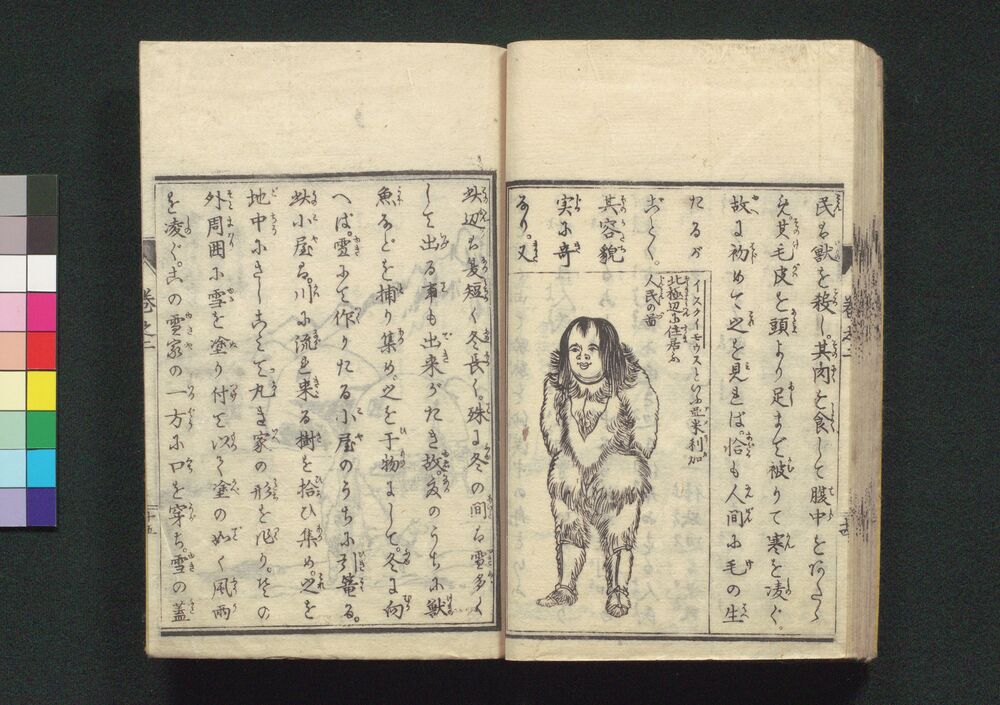 民も獣を殺し。其肉を食して腹中をあたゝ
え。其毛皮を頭より足まで被りて寒を凌ぐ。
故に初めて之を見れば。恰も人間に毛の生
たるが
ごとく。
其容貌
実に奇
なり。又
イースクイモウスといふ亜米利加
北極辺に住居ふ
人民の図
此辺は夏短く冬長く。殊に冬の間は雪多く
して出る事も出来がたき故。夏のうちに獣
魚などを捕り集め。之を干物にして。冬に向
へば。雪にて作りたる小屋のうちに引篭る。
此小屋は。川に流れ来る樹を拾ひ集め。之を
地中にさしこみて丸き家の形を作り。その
外周囲に雪を塗り付て。いつき塗の如く風雨
を凌ぐ。この雪家の一方に口を穿ち。雪の蓋
巻之二